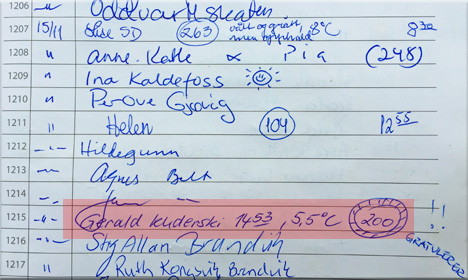 1206 -"- Oddvar M. Skaten
1207 15/11 Lise SD 263 vått og grått, men opphold 8°C 8 30
1208 " Anne-Kathe & Pia (248)
1209 " Ina Kaldefoss
1210 " Per Ove
1211 " Helen 104 12 55
1212 -"- Hildegunn
1213 -"- Agnes
1214 -"-
1215 -"- Gerald Kuderski 14 53, 5,5°C 200 !!
1216 -"- Stig Allan Brandvik GRATULERER
1217 " Ruth Brandvik